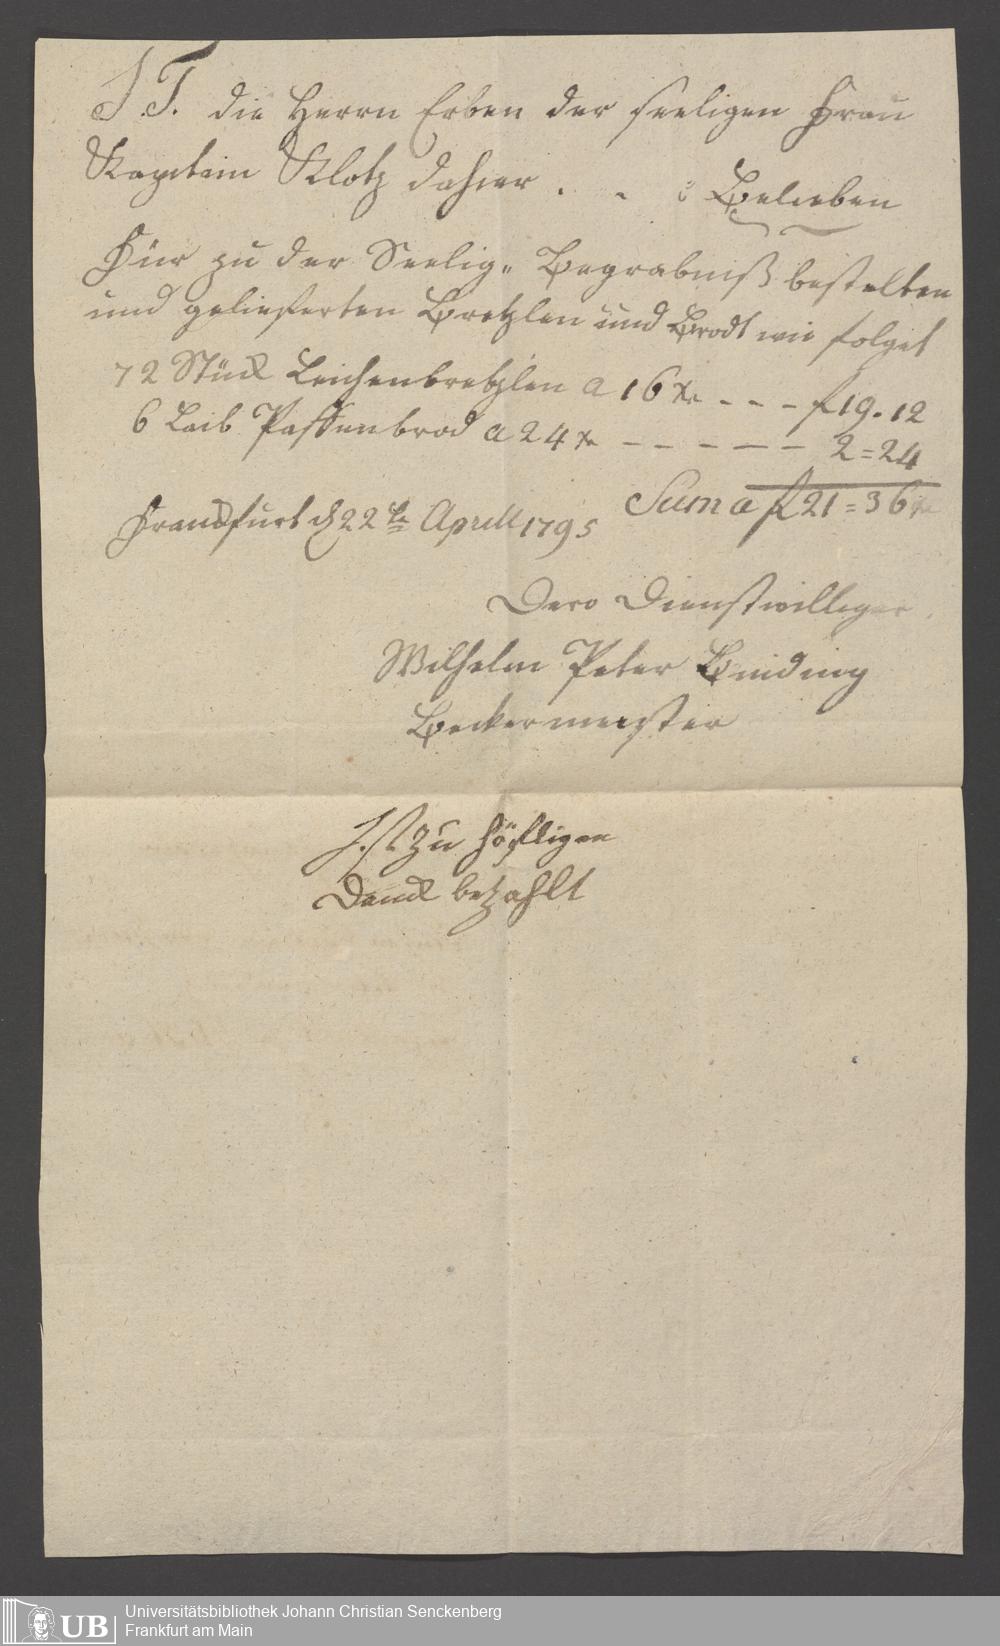 S. T. die Herrn Erben der seeligen Frau
Kapitain Klotz dahier . . : Belieben
Für zu der Seelig„ Begrabniß bestelten
und gelieferten Bretzlen und Brodt wie folget
72 Stück Leichenbretzlen a 16 xr - - - f 19. 12
6 Laib Passenbrod a 24 xr - - - - - 2 = 24
Suma f 21 = 36 xr
Franckfurt d 22 te Aprill 1795
Dero Dienstwilliger
Wilhelm Peter Binding
Beckermeister
Ist zu höfligen
Danck bezahlt
UB
Universitätsbibliothek Johann Christian Senckenberg
Frankfurt am Main